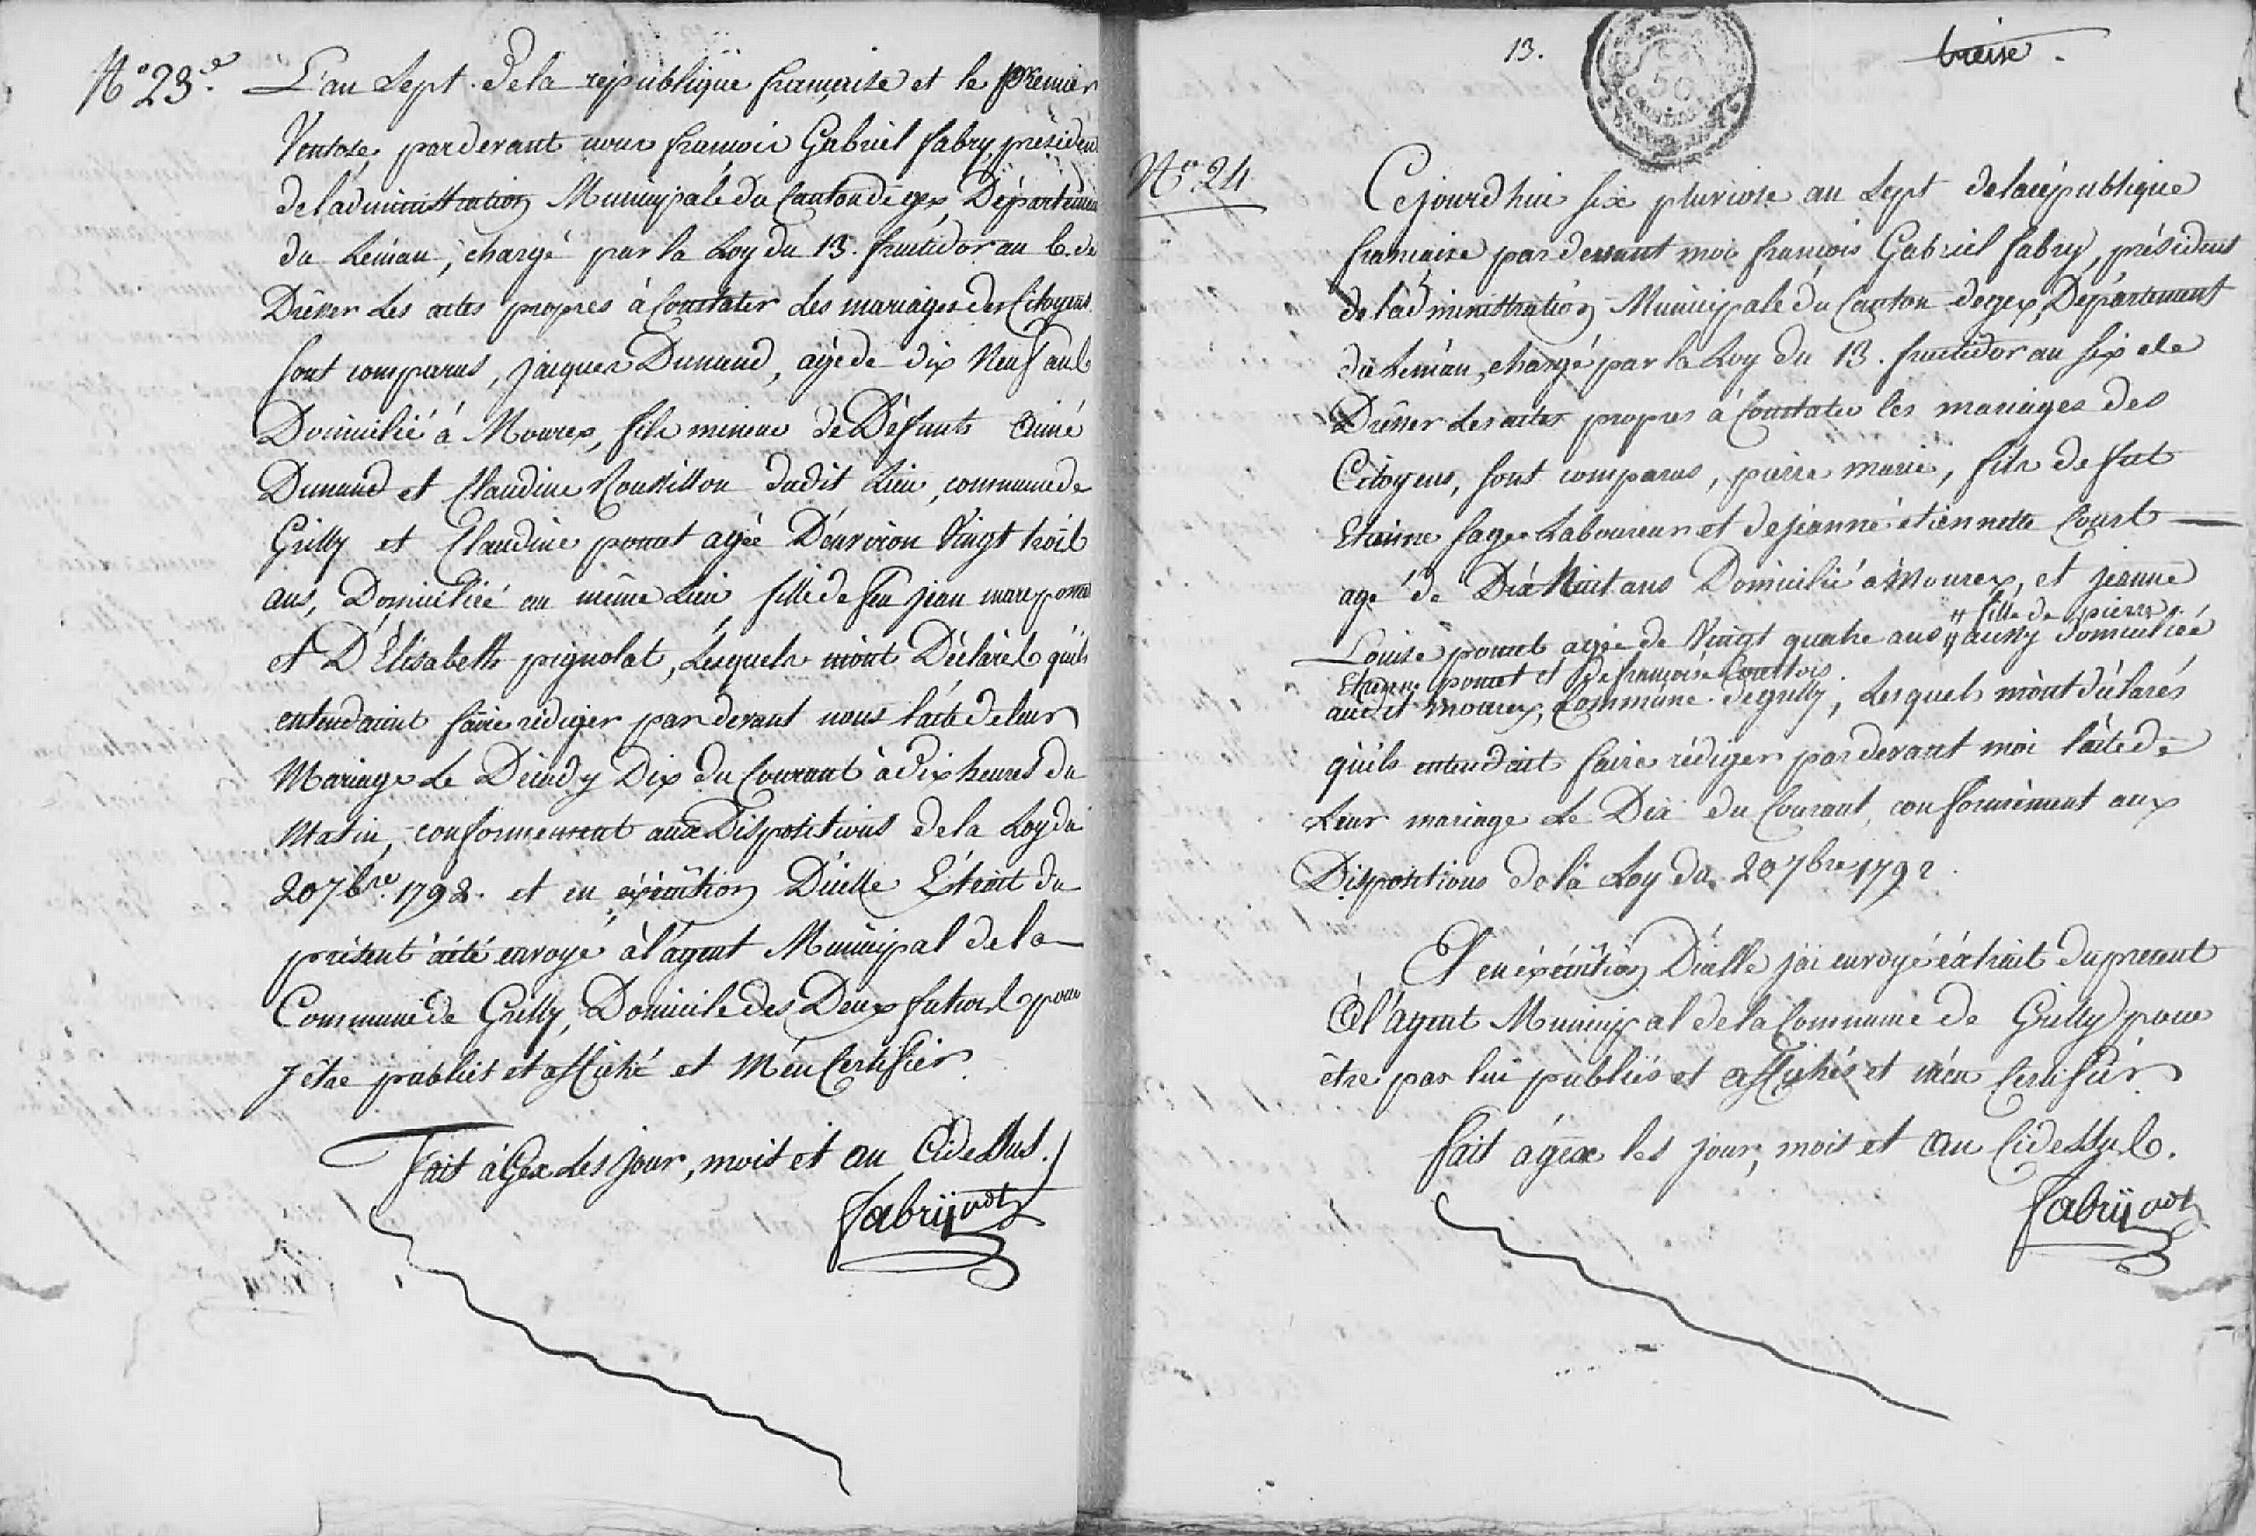 No 23e
L'an sept. de la république française et le premier
Ventose, par devant nous françois Gabriel fabry, présiden
de l'administration Municipale du Canton de gex, Départemen
du Léman, chargé par la Loy du 13. fructidor an 6. de
Drésser les actes propres à Constater les mariages des Citoyens
sont comparus, jacques Dunand, agé de dix Neuf ans
Domicilié à Mourex, fils mineur de Défunts aimé
Dunand et Claudine Roussillon dudit Lieu, commune de
Grilly et Claudine poncet agée D'environ Vingt trois
ans, Domiciliée au même Lieu, fille de feu jean marc poncet
et D'Elisabeth pignolat, Lesquels m'ont Déclarés qu'ils
entendaient faire rédiger par devant nous l'acte de leur
Mariage Le Décady Dix du Courant à dix heures du
Matin, conformement aux Dispositions de la Loy du
20 7bre. 1792. et en exécution D'icelle Extrait du
présent a été envoyé à l'agent Municipal de la
Commune de Grilly, Domicile des Deux futurs pour
y être publiés et affiché et m'en Certifier.
Fait à Gex les jour, mois et an Cidessus.
Fabry pdt
13.
treise.
No 24
Cejourd'hui six pluviose an sept de la république
française par devant moi françois Gabriel fabry, président
de l'administration Municipale du Canton de gex, Département
du Léman, chargé par la Loy du 13. fructidor an six de
Drésser les actes propres à Constater les mariages des
Citoyens, sont comparus, pierre marie, fils de fut
Etienne sage Laboureur et de jeanne étiennette Court
agé de Dix Huit ans Domicilié à Mourex, et jeanne
Louise poncet agée de Vingt quatre ans " fille de pierre " aussy domiciliée
Etienne poncet et de françoise Courtois.
audit mourex, Commune de grilly, Lesquels m'ont déclarés
qu'ils entendait faire rédiger par devant moi l'acte de
Leur mariage Le Dix du Courant, conformément aux
Dispositions de la Loy du 20 7bre 1792.
Et en exécution D'icelle j'ai envoyé éxtrait du present
à l'agent Municipal de la Commune de Grilly pour
être par lui publiés et affichés et m'en Certifier
fait à gex les jour, mois et an Cidessus.
Fabry pdt